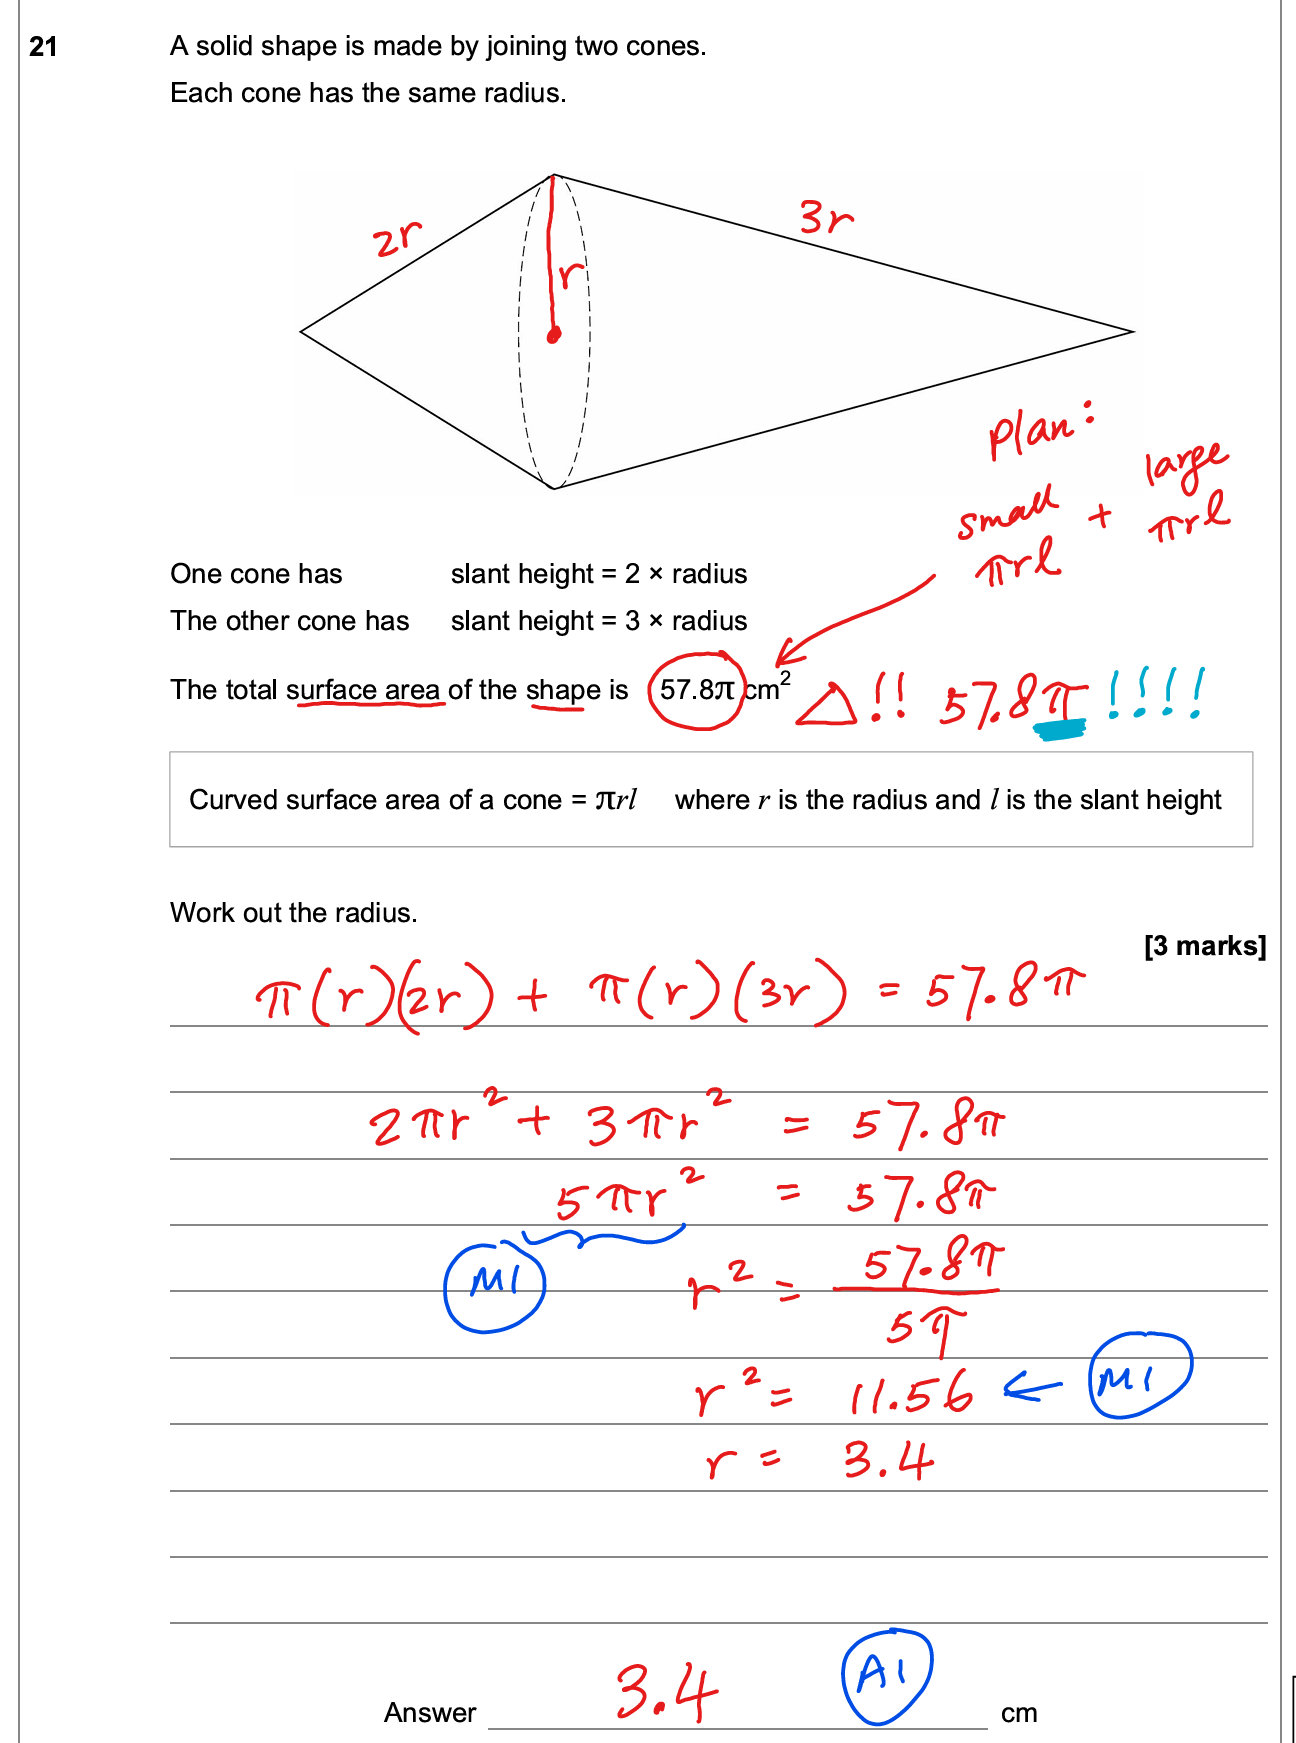 21 A solid shape is made by joining two cones.
Each cone has the same radius.
2r
3r
r
plan:
small + large
πrl πrl
One cone has slant height = 2 × radius
The other cone has slant height = 3 × radius
The total surface area of the shape is 57.8π cm² △!! 57.8π !!!!
Curved surface area of a cone = πrl where r is the radius and l is the slant height
Work out the radius.
[3 marks]
π(r)(2r) + π(r)(3r) = 57.8π
2πr² + 3πr² = 57.8π
5πr² = 57.8π
M1
r² = 57.8π / 5π
r² = 11.56 ← M1
r = 3.4
Answer 3.4 A1 cm